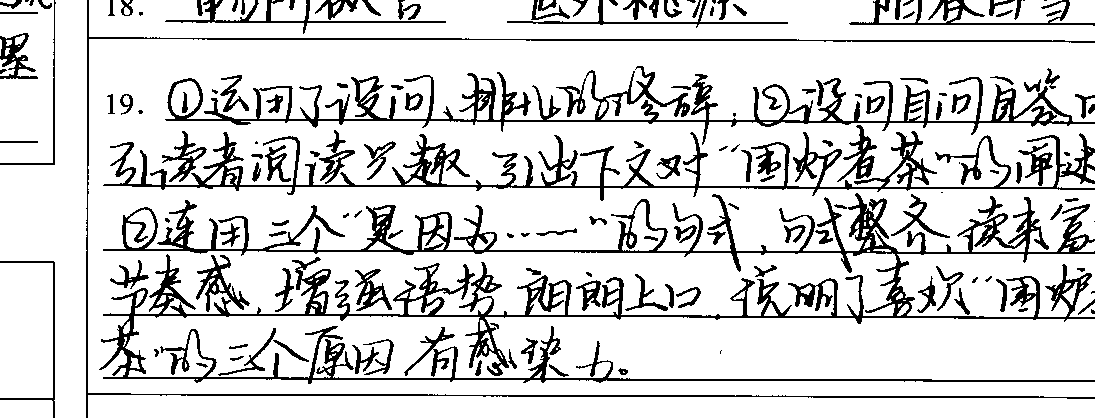 18. 世外桃源 阳春白雪
墨
19. ①运用了设问、排比的修辞；②设问自问自答,
引读者阅读兴趣，引出下文对“围炉煮茶”的阐述
②连用三个“是因为……”的句式，句式整齐，读来富
节奏感，增强语势，朗朗上口，说明了喜欢“围炉
茶”的三个原因 有感染力。